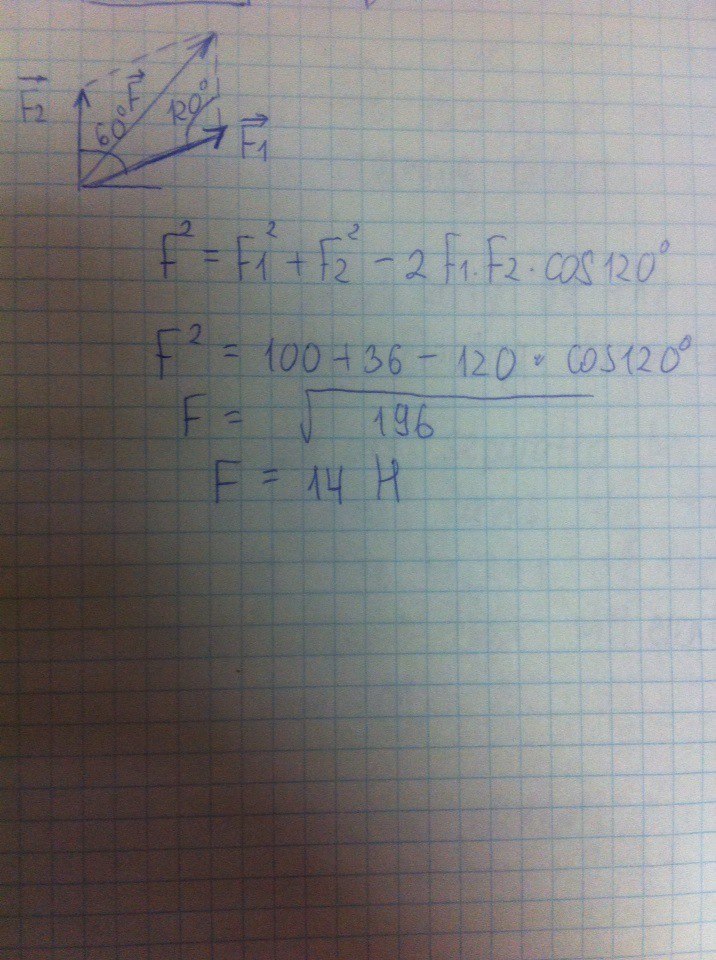 F⃗2
60°
F⃗
120°
F⃗1
F² = F1² + F2² - 2 F1 · F2 · cos 120°
F² = 100 + 36 - 120 · cos 120°
F = √196
F = 14 Н